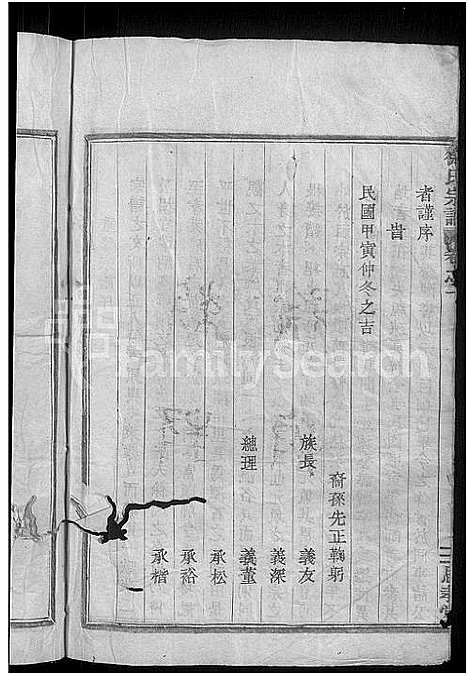 者謹序
旹
民國甲寅仲冬之吉
裔孫先正鞠躬
族長 義友
義深
總理 義董
承松
承裕
承楷
氏宗譜
FamilySearch